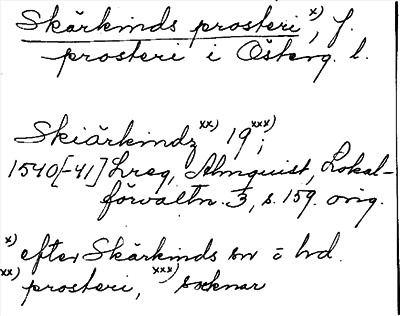 Skärkinds prosteri x), f.
prosteri i Österg. l.
Skiärkindz xx) 19 xxx);
1540[-41] Lreg, Almquist, Lokal-
förvaltn. 3, s. 159. orig.
x) efter Skärkinds sn o hd.
xx) prosteri, xxx) socknar